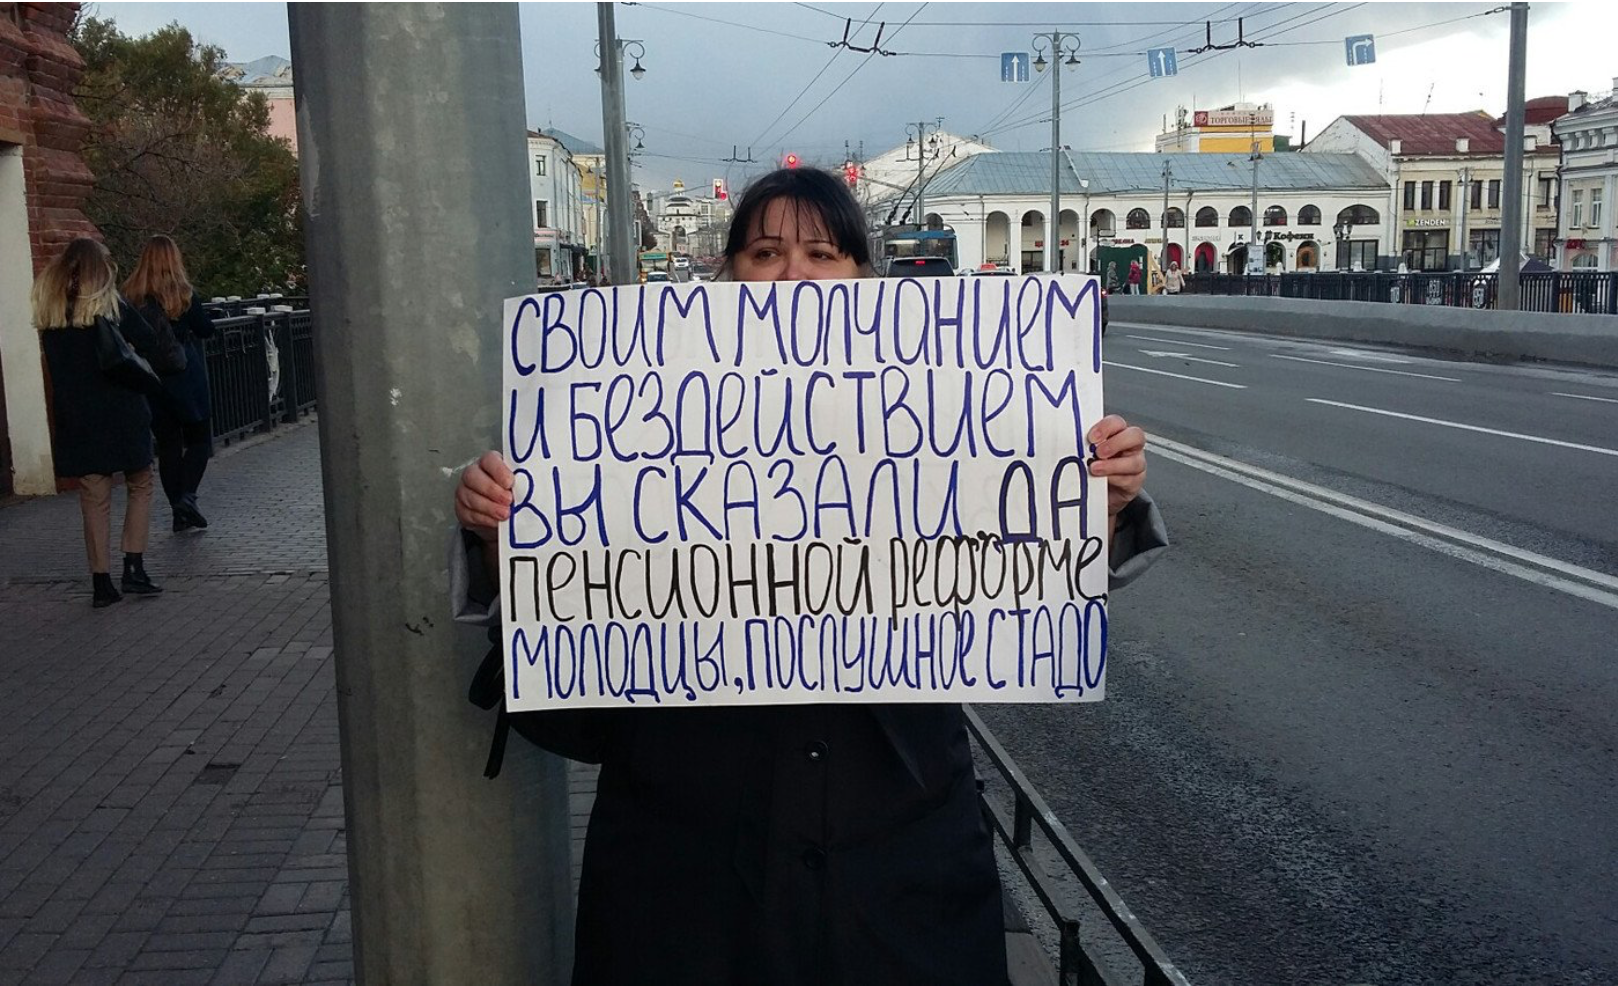 СВОИМ МОЛЧАНИЕМ
И БЕЗДЕЙСТВИЕМ,
ВЫ СКАЗАЛИ "ДА"
ПЕНСИОННОЙ РЕФОРМЕ,
МОЛОДЦЫ, ПОСЛУШНОЕ СТАДО
ТОРГОВЫЕ РЯДЫ
ZENDEN
Кофеин